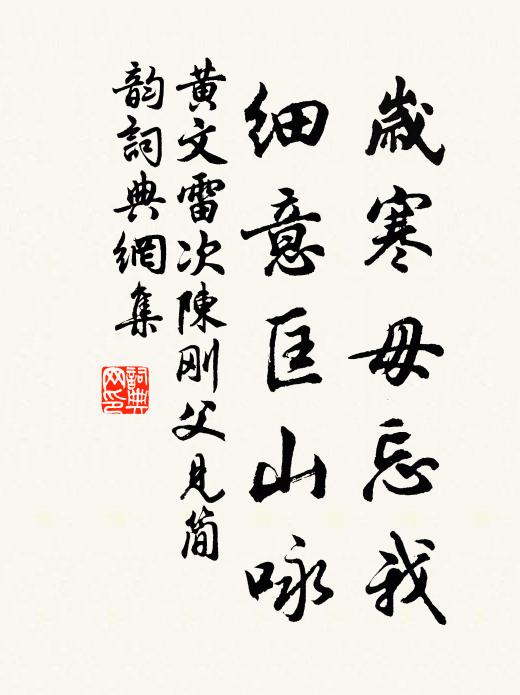 歲寒毋忘我
細意匡山咏
黄文雷次陳剛父見簡
韵詞典網集
詞典
网印